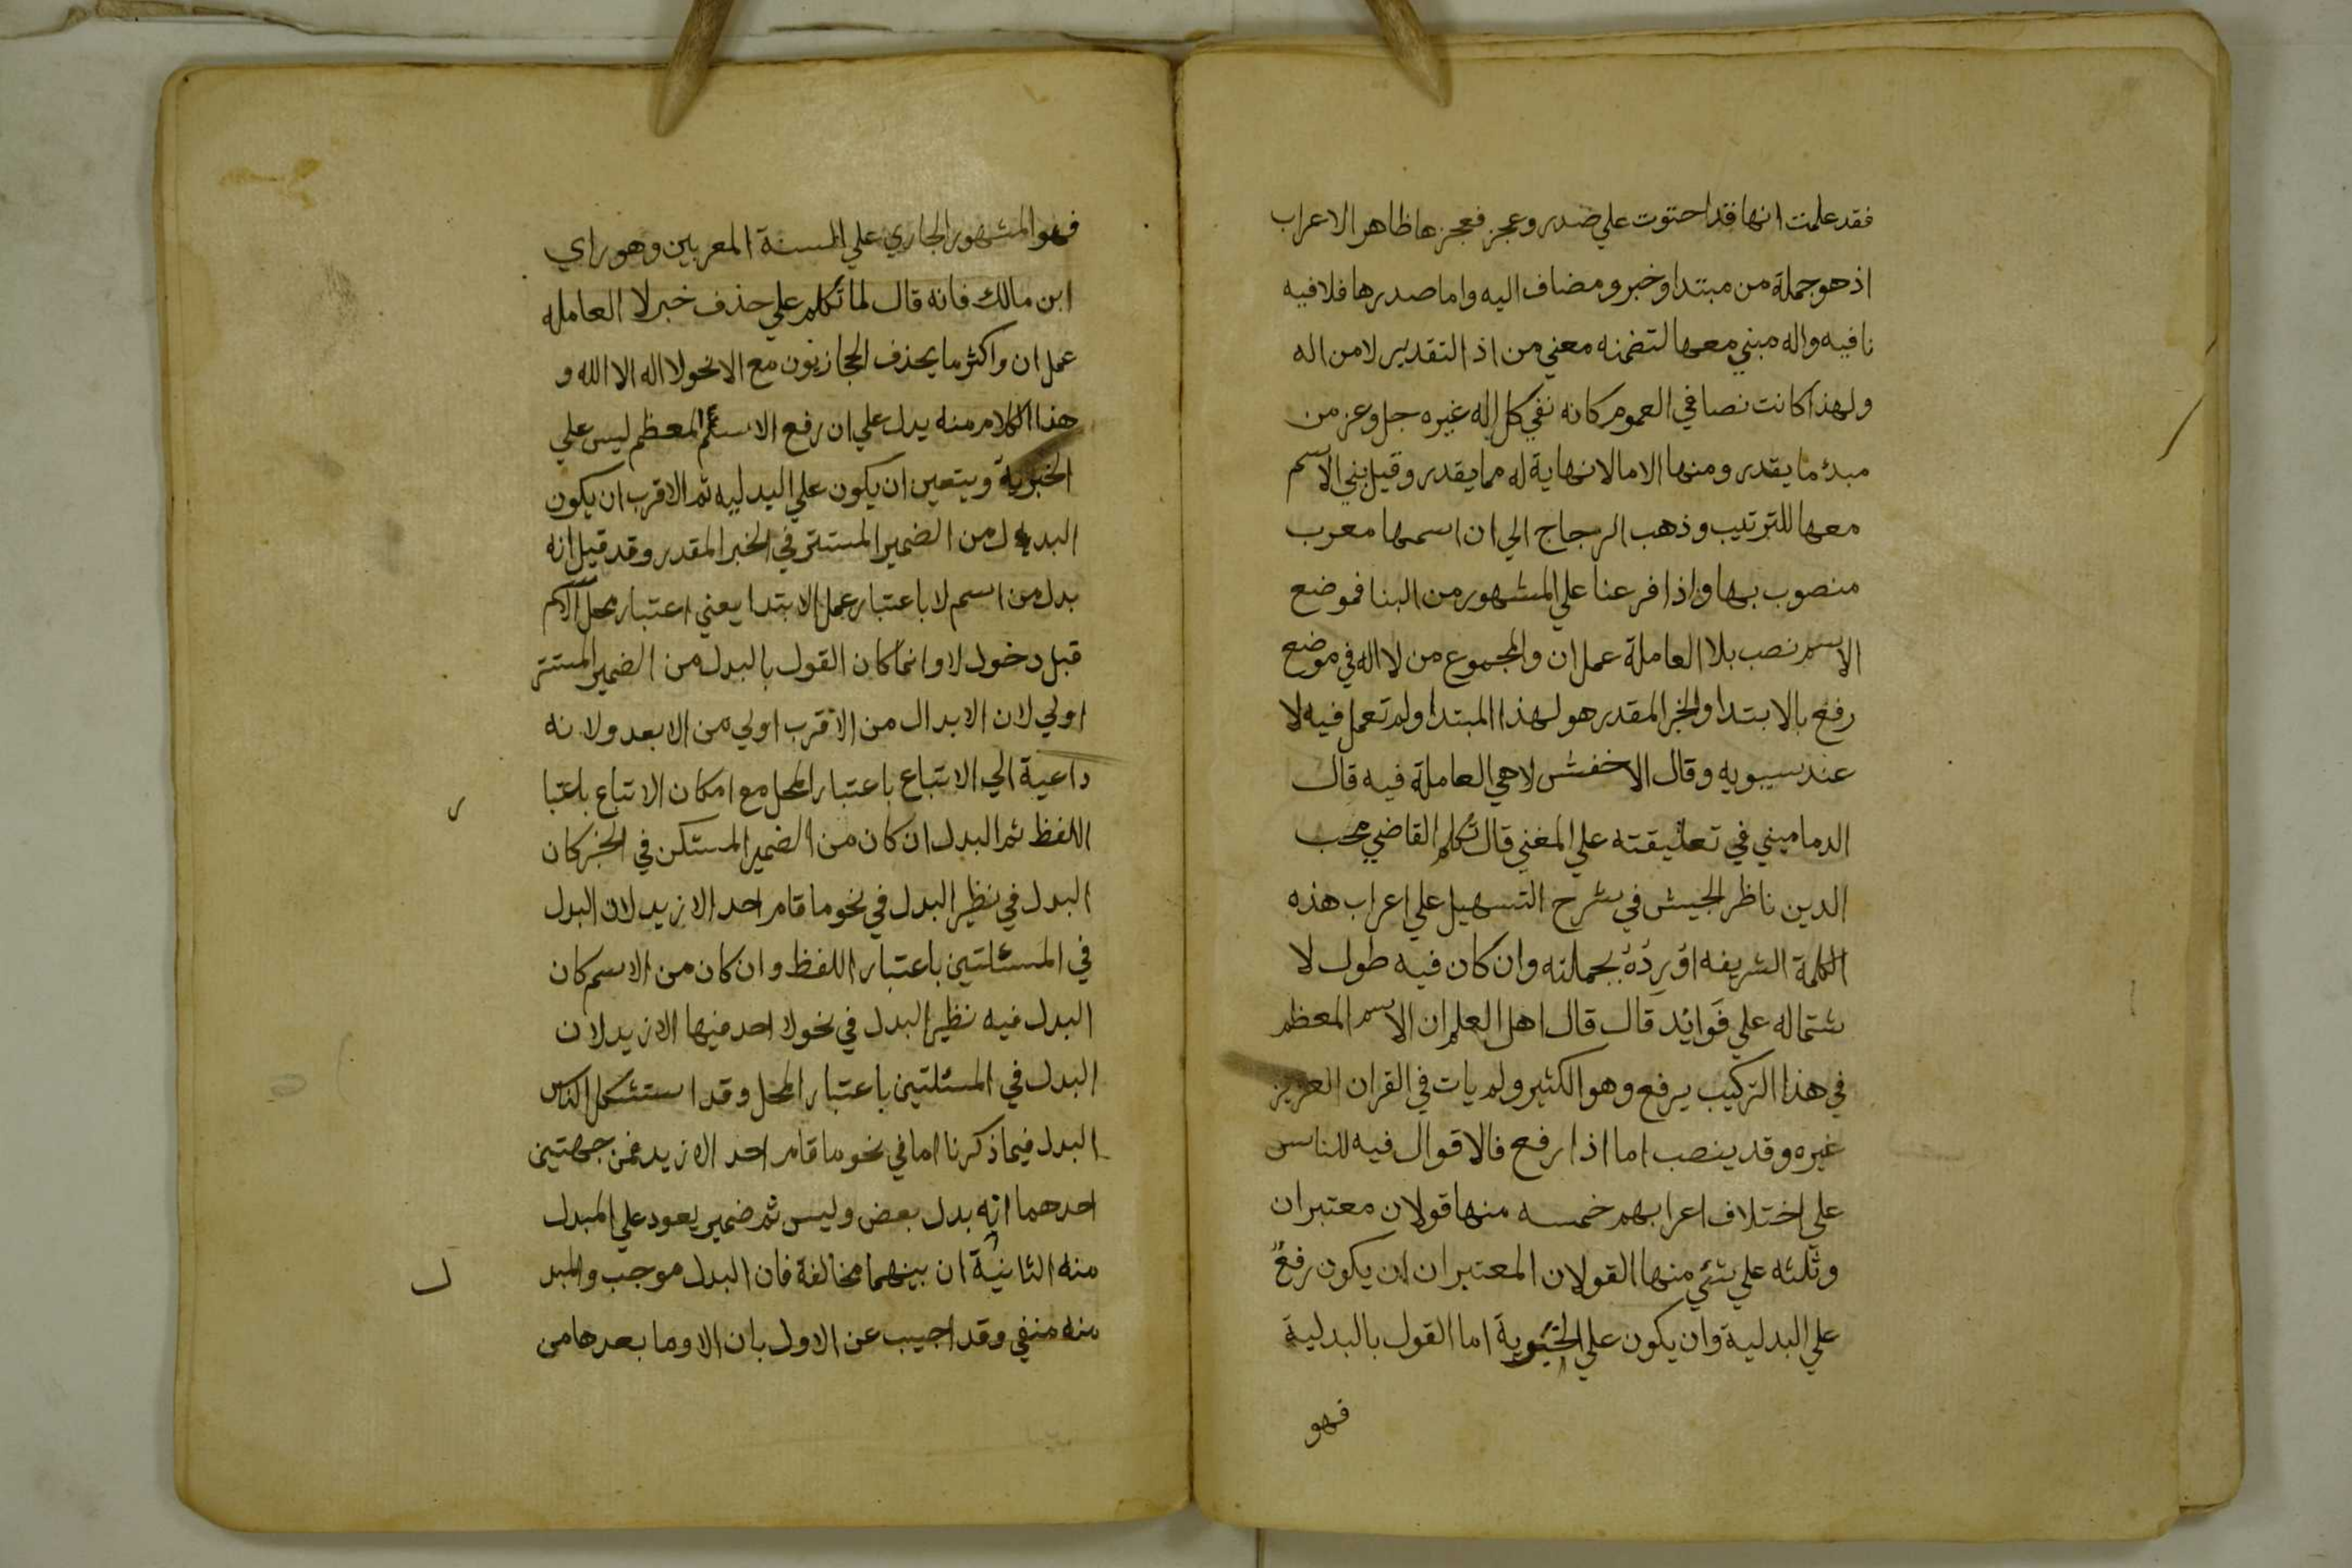 فقد علمت انها قد احتوت علي صدر وعجز فعجزها ظاهر الاعراب
اذ هو جملة من مبتدا وخبر ومضاف اليه واما صدرها فلا فيه
نافيه واله مبني معها لتضمنه معني من اذ التقدير لا من اله
ولهذا كانت نصا في العموم كانه نفي كل اله غيره جل وعز من
مبدء ما يقدر ومنها الا ما لا نهاية له مما يقدر وقيل بني الاسم
معها للترتيب وذهب الزجاج الي ان اسمها معرب
منصوب بها واذا فرعنا علي المشهور من البنا فموضع
الاسم نصب بلا العاملة عمل ان والمجموع من لا اله في موضع
رفع بالابتدا والخبر المقدر هو لهذا المبتدا ولم تعمل فيه لا
عند سيبويه وقال الاخفش لا هي العاملة فيه قال
الدماميني في تعليقته علي المغني قال تكلم القاضي محب
الدين ناظر الجيش في شرح التسهيل علي اعراب هذه
الكلمة الشريفه اوْرِدُهُ بجملته وان كان فيه طول لا
شتماله علي فَوائِد قال قال اهل العلم ان الاسم المعظم
في هذا التركيب يرفع وهو الكثير ولم يات في القران العزيز
غيره وقد ينصب اما اذا رفع فالاقوال فيه للناس
علي اختلاف اعرابهم خمسه منها قولان معتبران
وثلثه علي شئي منها القولان المعتبران ان يكون رفعُ
علي البدلية وان يكون علي الخبوية اما القول بالبدلية
فهو
فهو المشهور الجاري علي السنة المعربين وهو راي
ابن مالك فانه قال لما تكلم علي حذف خبر لا العامله
عمل ان واكثر ما يحذف الحجازيون مع الا نحو لا اله الا الله و
هذا الكلام منه يدل علي ان رفع الاسم المعظم ليس علي
الخبرية ويتعين ان يكون علي البدليه ثم الاقرب ان يكون
البدل من الضمير المستتر في الخبر المقدر وقد قيل انه
بدل من اسم لا باعتبار عمل الابتدا يعني اعتبار محل الاسم
قبل دخول لا وانما كان القول بالبدل من الضمير المستتر
اولي لان الابدال من الاقرب اولي من الابعد ولانه
داعية الي الاتباع باعتبار المحل مع امكان الاتباع باعتبا
ر
اللفظ ثم البدل ان كان من الضمير المستكن في الخبر كان
البدل في نظير البدل في نحو ما قام احد الا زيد لان البدل
في المسئلتين باعتبار اللفظ وان كان من الاسم كان
البدل فيه نظير البدل في نحو لا احد فيها الا زيد لان
البدل في المسئلتين باعتبار المحل وقد استشكل الناس
البدل فيما ذكرنا اما في نحو ما قام احد الا زيد فمن جهتين
احدهما انه بدل بعض وليس ثم ضمير يعود علي المبدل
منه الثانية ان بينهما مخالفة فان البدل موجب والمبد
ل
منه منفي وقد اجيب عن الاول بان الا وما بعدها من